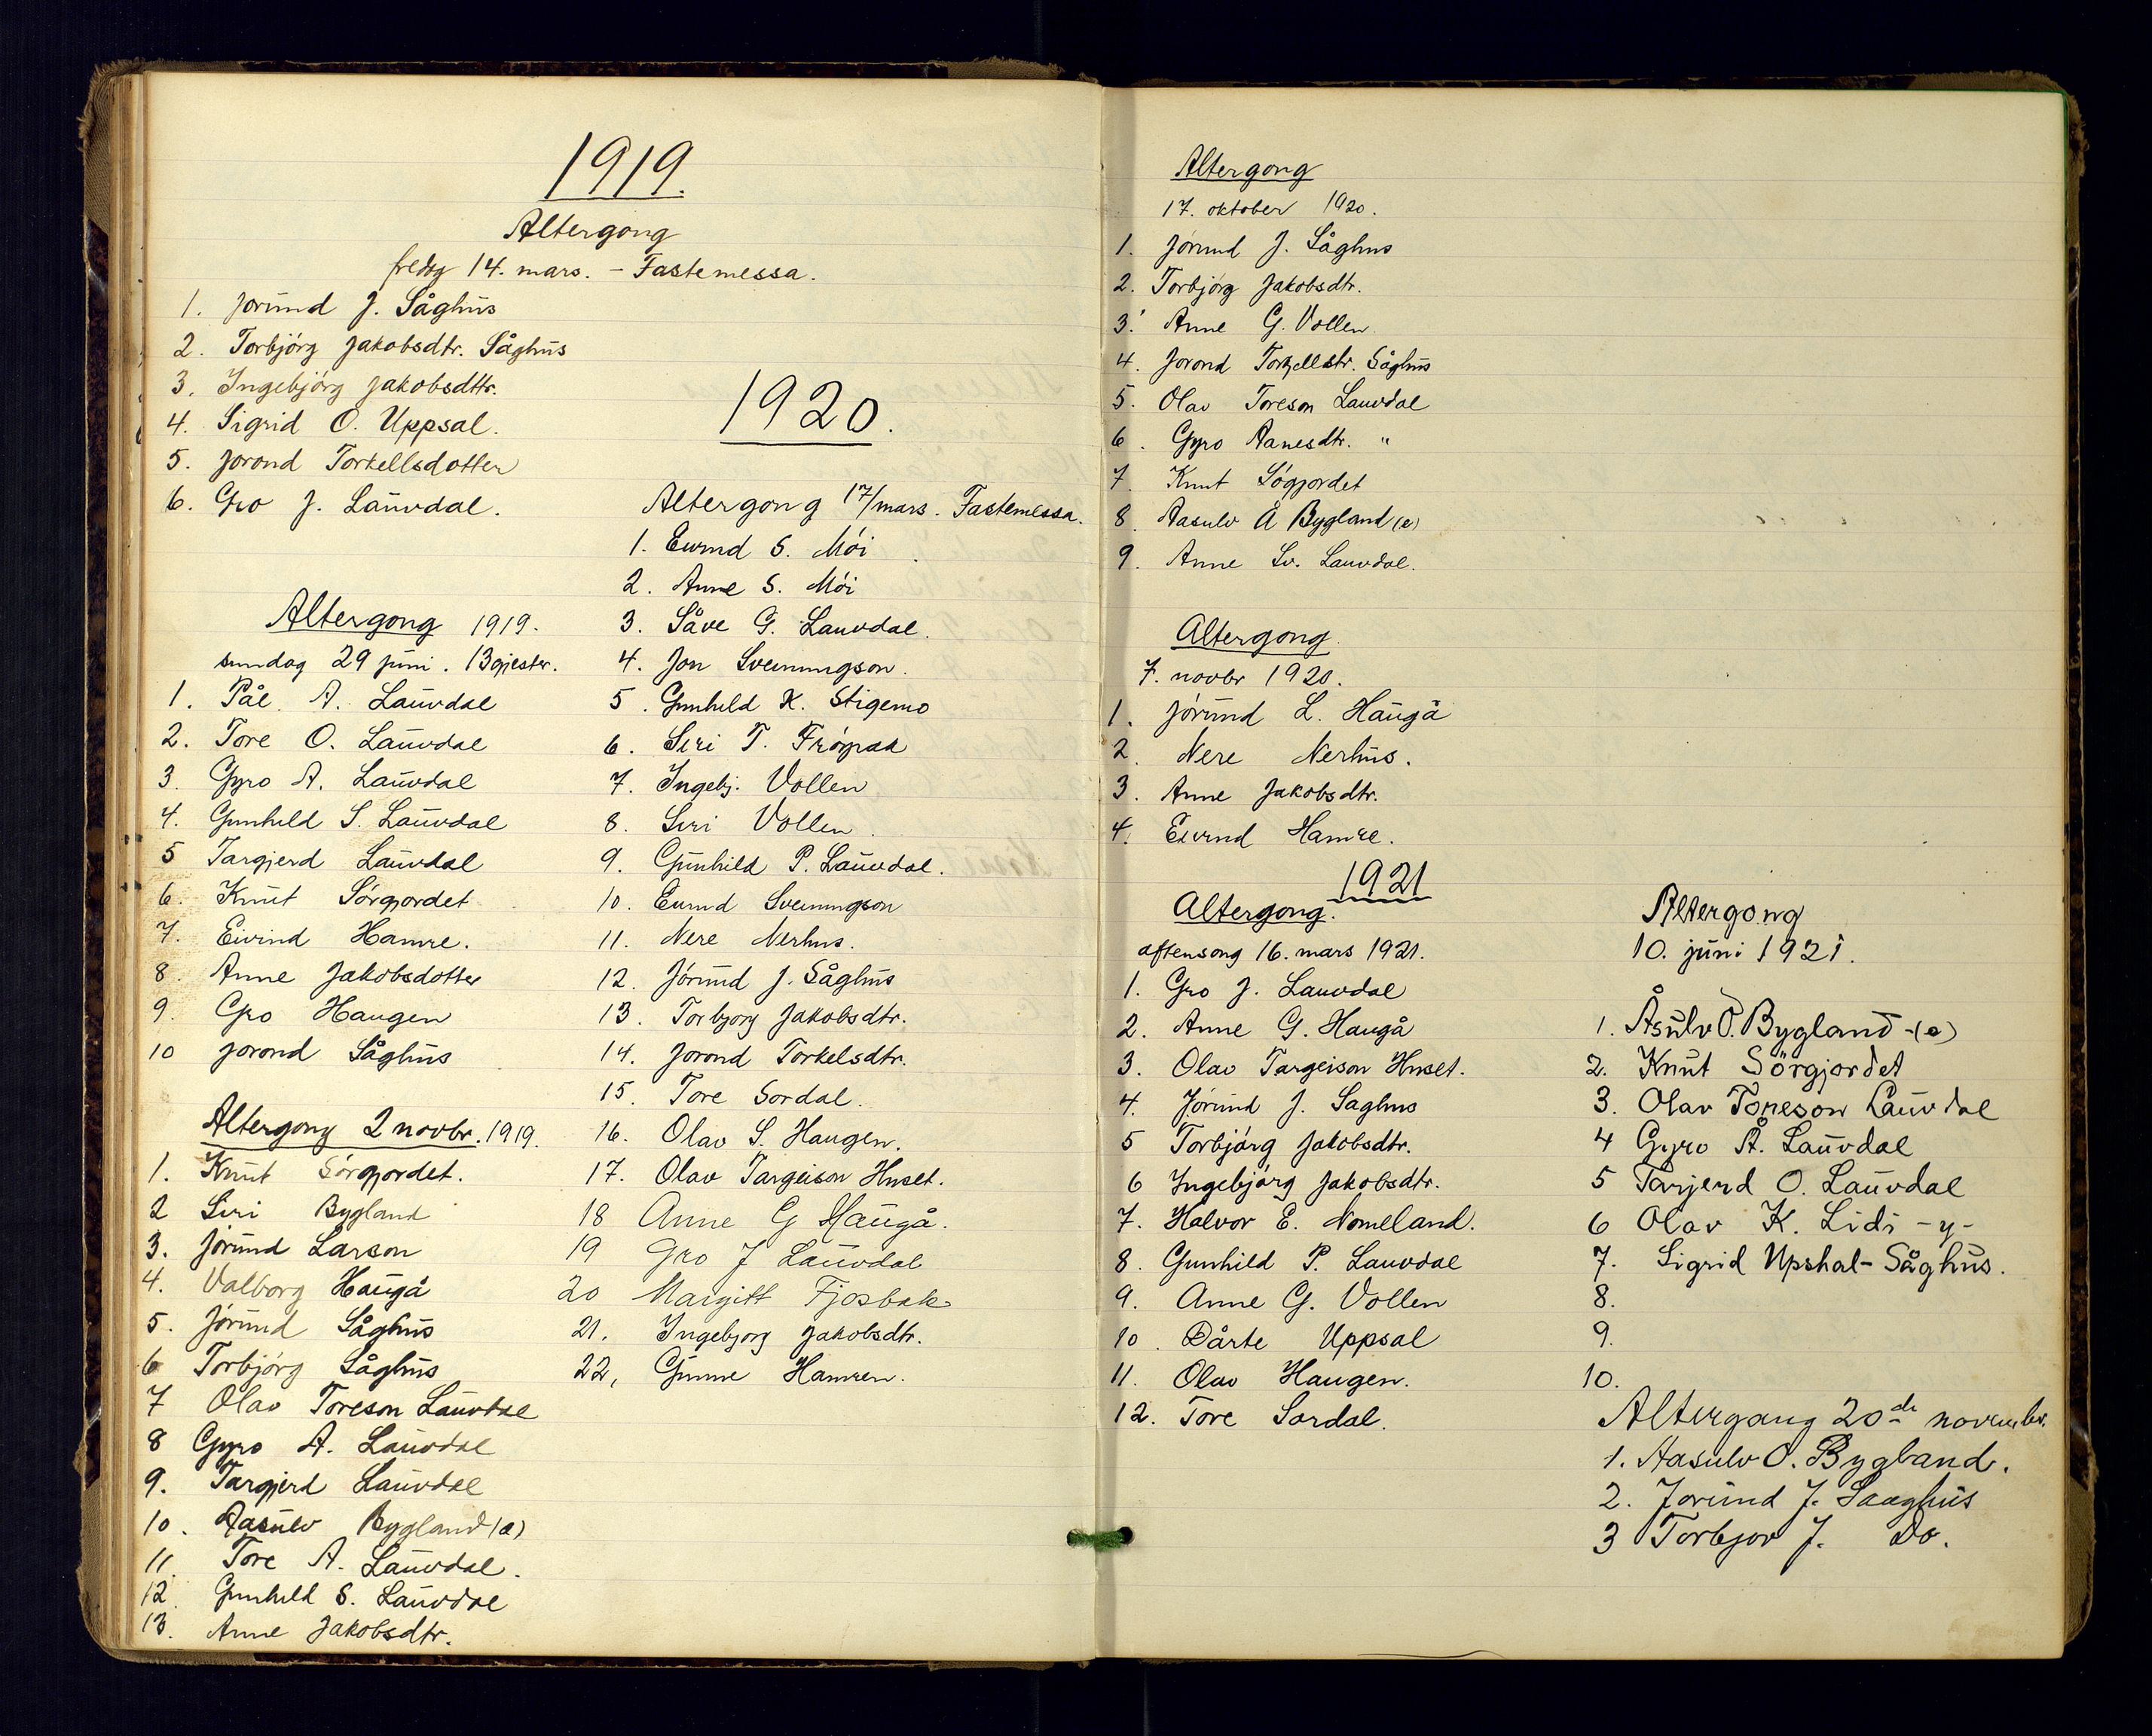 1919.
Altergong
fredag 14. mars. - Fastemessa.
1. Jorund J. Såghus
2. Torbjörg Jakobsdtr. Såghus
3. Ingebjörg Jakobsdttr.
4. Sigrid O. Uppsal.
5. Jorond Torkellsdotter
6. Gro J. Lauvdal.
Altergong 1919.
sundag 29 juni. 13 gjester.
1. Pål A. Lauvdal
2. Tore O. Lauvdal
3. Gyro A. Lauvdal
4. Gunhild S. Lauvdal
5 Targjerd Lauvdal
6. Knut Sörgjordet
7. Eivind Hamre.
8. Anne Jakobsdotter
9. Gro Haugen
10 Jorond Såghus
Altergong 2 novbr. 1919.
1. Knut Sörgjordet.
2 Siri Bygland
3. Jörund Larson
4. Valborg Haugå
5. Jörund Såghus
6 Torbjörg Såghus
7 Olav Toreson Lauvdal
8 Gyro A. Lauvdal
9. Targjerd Lauvdal
10. Aasulv Bygland (e)
11. Tore A. Lauvdal.
12. Gunhild S. Lauvdal
13. Anne Jakobsdtr.
1920.
Altergong 17/mars. Fastemessa.
1. Eivind S. Möi
2. Anne S. Möi
3. Såve G. Lauvdal.
4. Jon Sveinungson.
5. Gunhild K. Stigemo
6. Siri T. Fröysak
7. Ingebj. Vollen
8. Siri Vollen.
9. Gunhild P. Lauvdal.
10. Eivind Sveinungson
11. Nere Nerhus.
12. Jörund J. Såghus
13. Torbjorg Jakobsdtr.
14. Jorond Torkelsdtr.
15. Tore Sordal.
16. Olav S. Haugen.
17. Olav Targeison Huset.
18 Anne G Haugå.
19 Gro J Lauvdal
20 Margitt Fjosbak
21. Ingebjorg Jakobsdtr.
22, Gunne Hamren.
Altergong
17. oktober 1920.
1. Jörund J. Såghus
2. Torbjörg Jakobsdtr.
3. Anne G. Vollen
4. Jorond Torkjellstr. Såghus
5. Olav Toreson Lauvdal
6. Gyro Aanesdtr. "
7. Knut Sögjordet
8. Aasulv Å Bygland (e)
9. Anne Sv. Lauvdal.
Altergong.
7. novbr 1920.
1. Jörund L. Haugå
2. Nere Nerhus.
3. Anne Jakobsdtr.
4. Eivind Hamre.
1921
Altergong.
aftensong 16. mars 1921.
1. Gro J. Lauvdal
2. Anne G. Haugå
3. Olav Targeison Huset.
4. Jörund J. Saghus
5 Torbjörg Jakobsdtr.
6 Ingebjörg Jakobsdtr.
7. Halvor E. Nomeland.
8. Gunhild P. Lauvdal
9. Anne G. Vollen
10. Dårte Uppsal
11. Olav Haugen.
12. Tore Sordal.
Altergong
10. juni 1921.
1. Åsulv O. Bygland -(e)
2. Knut Sörgjordet
3. Olav Toreson Lauvdal
4 Gyro Å. Lauvdal
5 Tarjerd O. Lauvdal
6 Olav K. Lidi -y-
7. Sigrid Upshal-Såghus.
8.
9.
10.
Altergang 20de novembr.
1. Aasulv O. Bygland.
2. Jorund J. Saaghus
3 Torbjor J. Do.